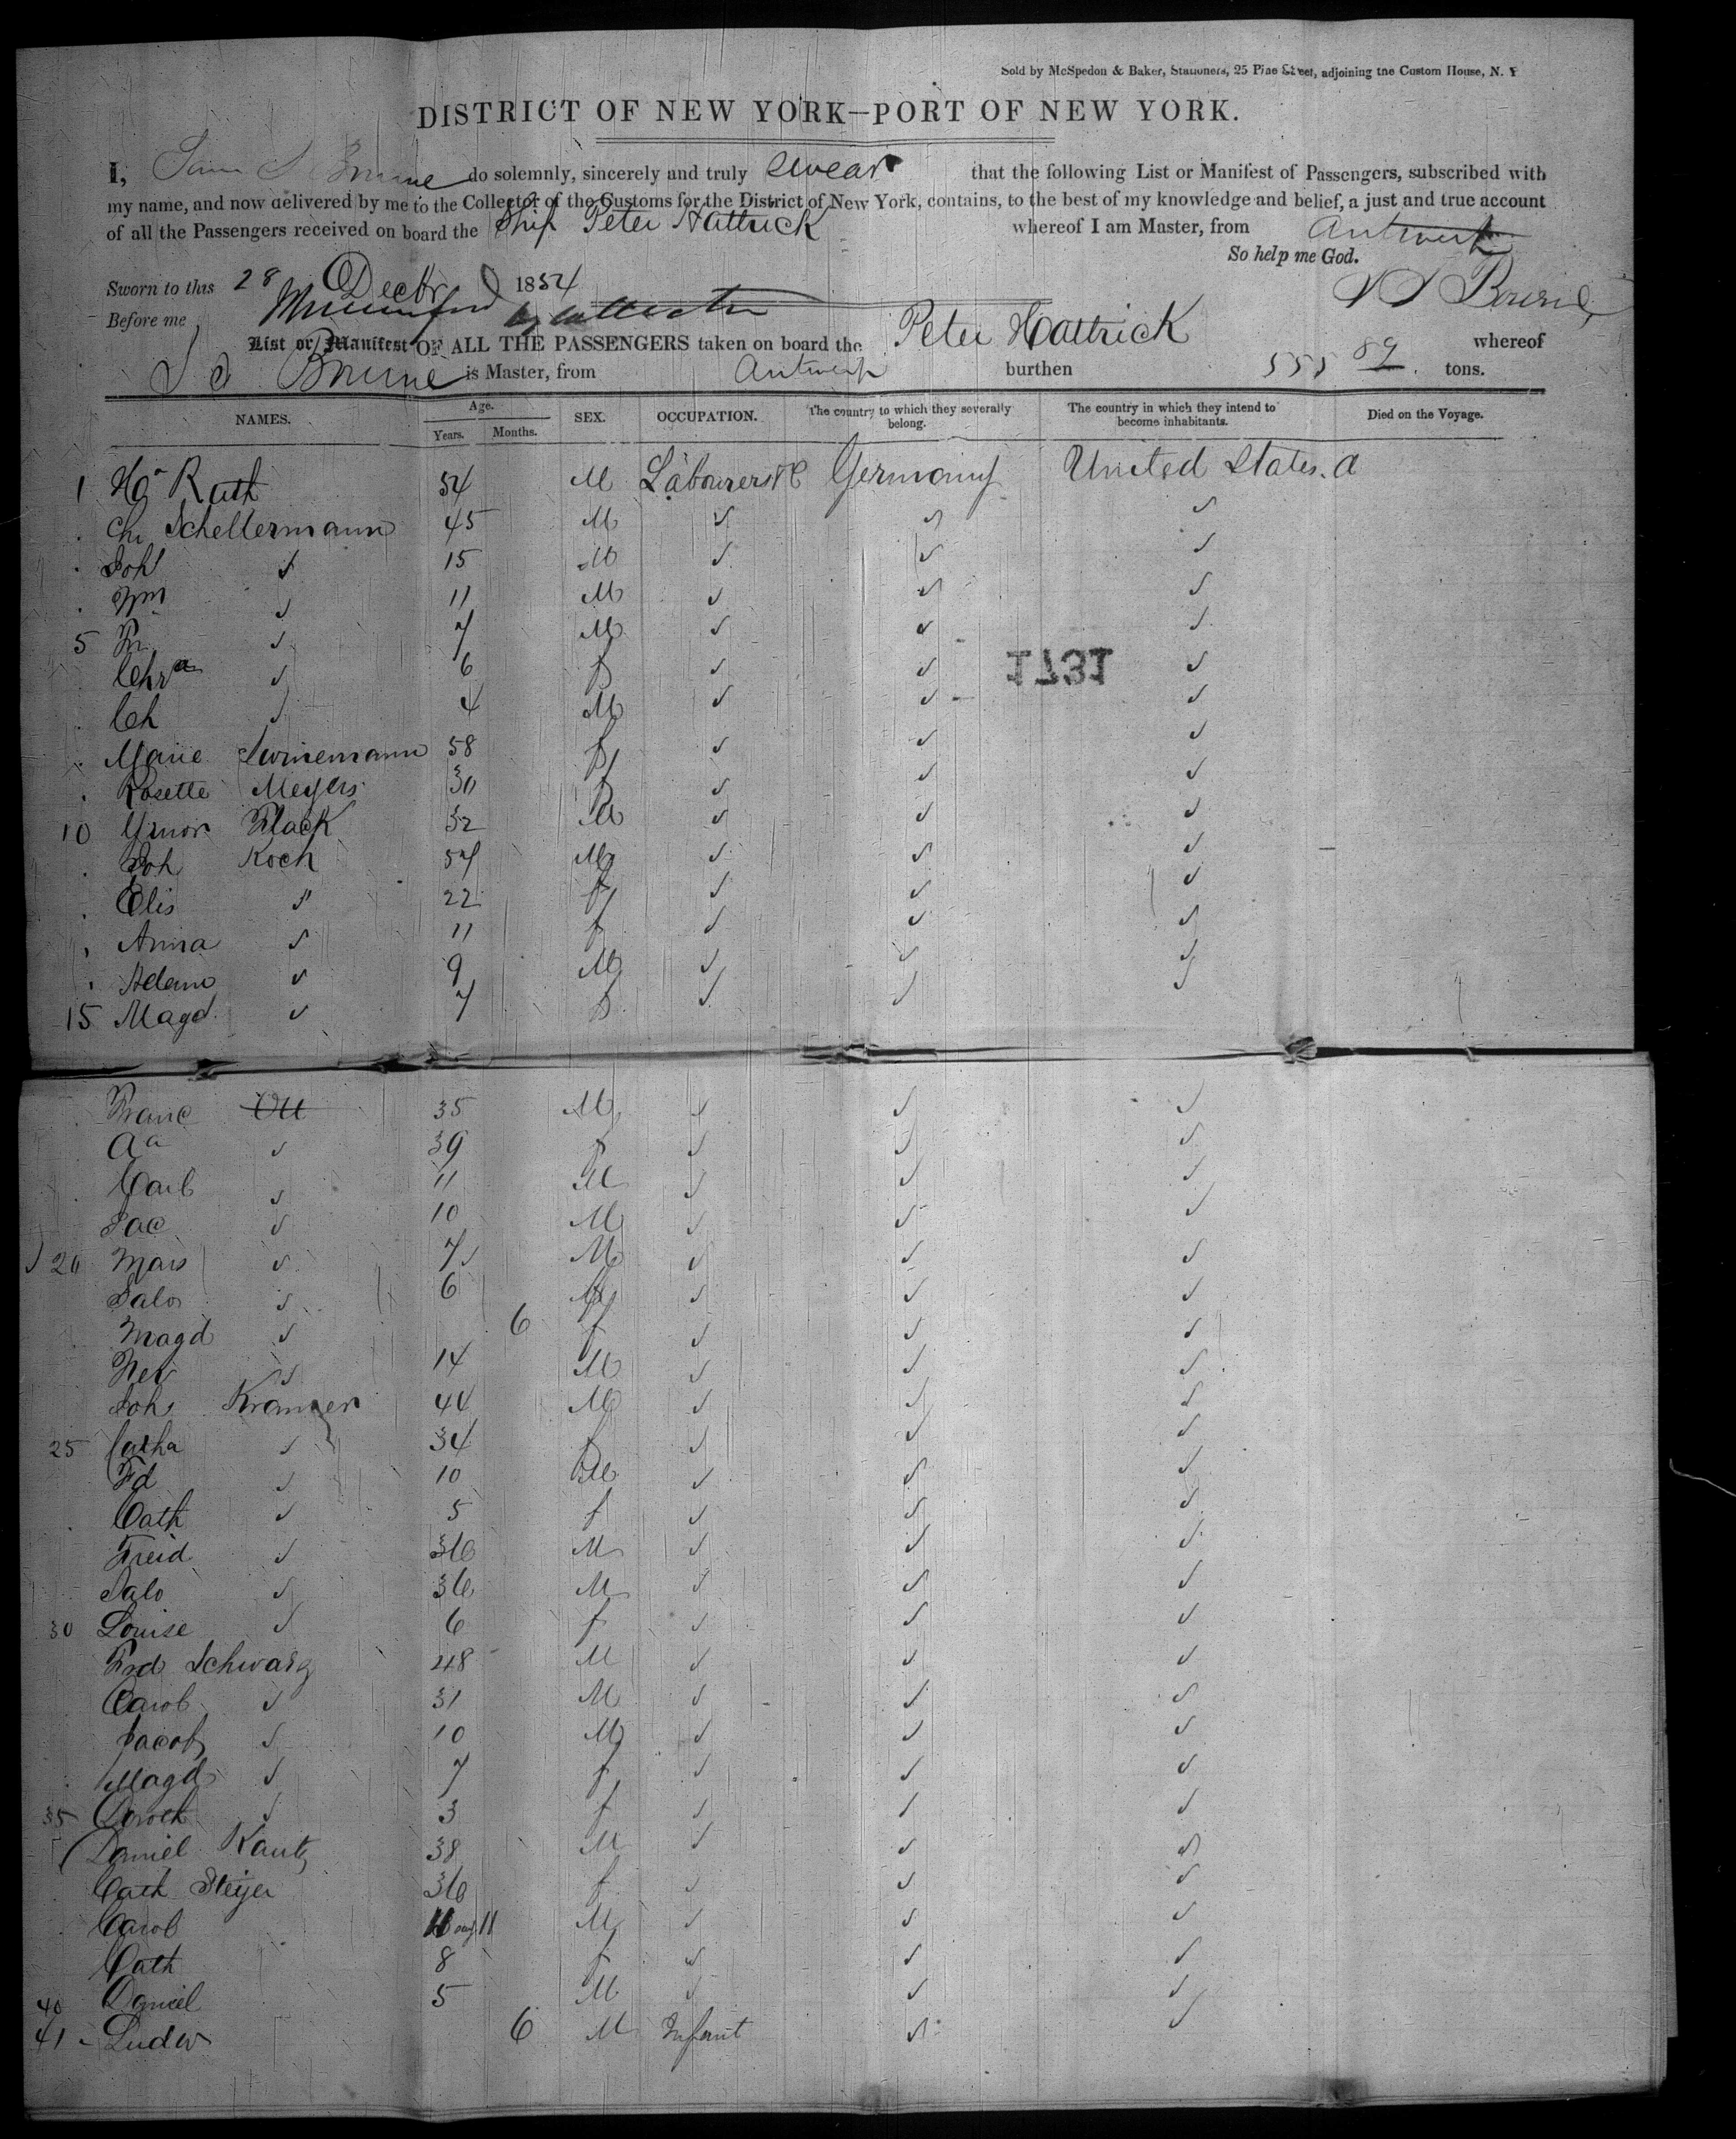 Sold by McSpedon & Baker, Stationers, 25 Pine Street, adjoining the Custom House, N. Y
DISTRICT OF NEW YORK—PORT OF NEW YORK.
I, do solemnly, sincerely and truly swear that the following List or Manifest of Passengers, subscribed with
my name, and now delivered by me to the Collector of the Customs for the District of New York, contains, to the best of my knowledge and belief, a just and true account
of all the Passengers received on board the Ship Peter Hattrick whereof I am Master, from Antwerp
So help me God.
Sworn to this 28 Decbr 1854
Before me
List or Manifest OF ALL THE PASSENGERS taken on board the Peter Hattrick whereof
is Master, from Antwerp burthen 555 89 tons.
NAMES. Age. SEX. OCCUPATION. The country to which they severally belong. The country in which they intend to become inhabitants. Died on the Voyage.
Years. Months.
1 Rath 54 M Labourers &c Germany United States. a
Schellermann 45 M
Joh 15 M
Wm 11 M
5 Fr 7 M
Chra 6 f
Ch 4 M
1731
Marie 58 f
Rosette Meyers 30 f
10 Flack 32 M
Joh Koch 57 M
Elis 22 f
Anna 11 f
Adam 9 M
15 Magd 7 f
Franc Ott 35 M
Aa 39 f
Carl 11 M
Jac 10 M
20 Mars 7 M
Salo 6 M
Magd 6 f
14 M
Joh Kramer 44 M
25 Catha 34 f
Fd 10 M
Cath 5 f
Freid 36 M
Salo 36 M
30 Louise 6 f
Frd Schwarz 48 M
Carol 31 M
Jacob 10 M
Magd 7 f
35 Doroth 3 f
Daniel Kautz 38 M
Cath Steyer 36 f
Carol 11 M
Cath 8 f
40 Daniel 5 M
41 Ludw 6 M Infant